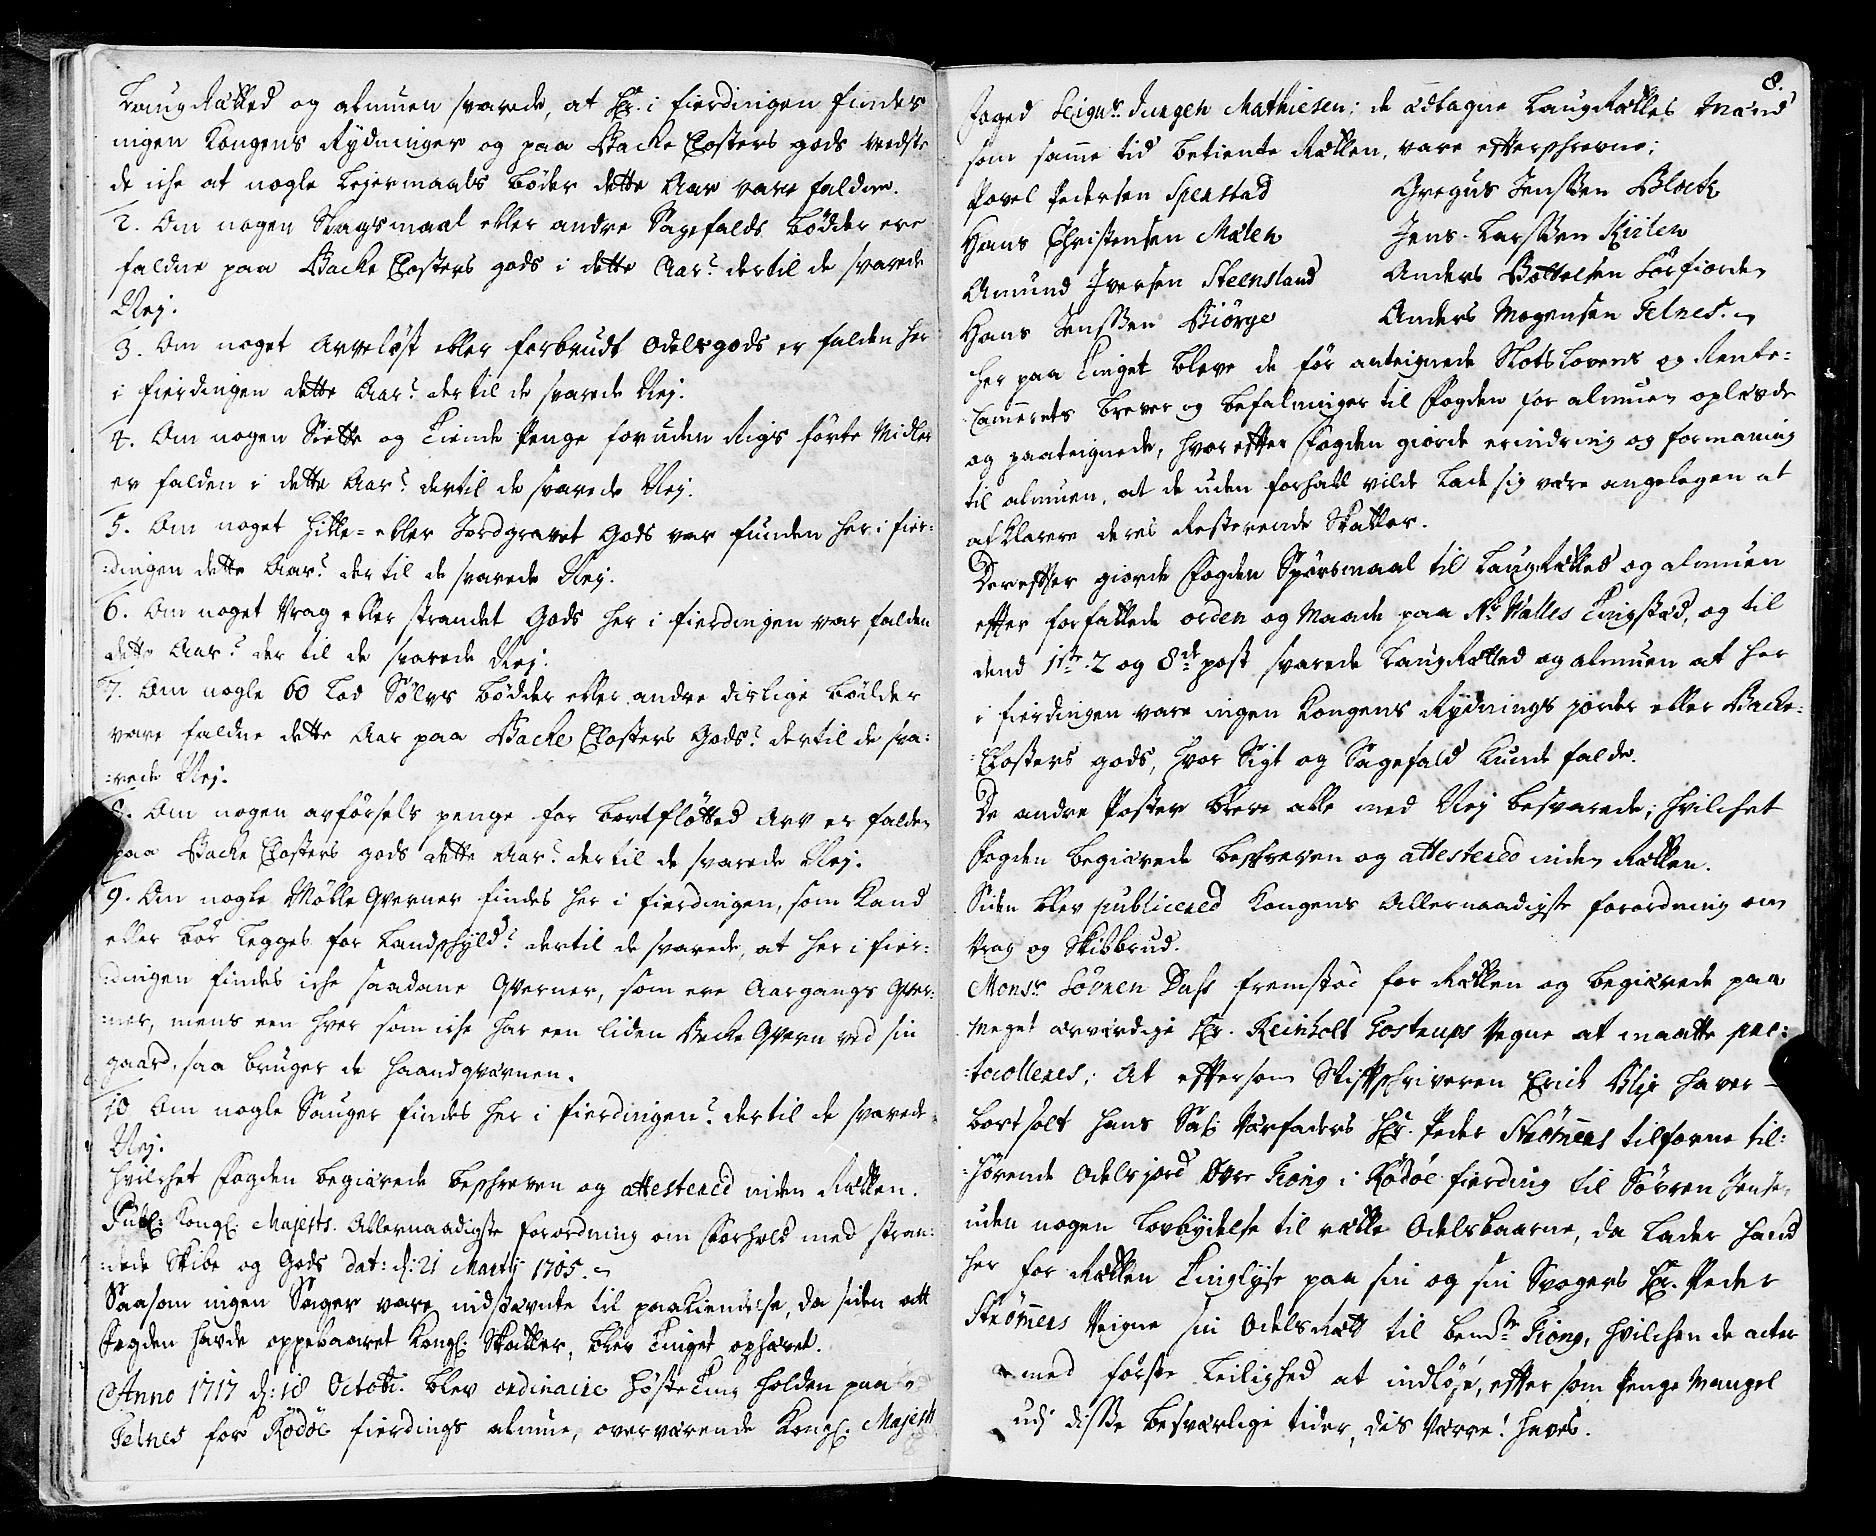 LaugRætted og almuen svarede, at hr. i fierdingen findes
ingen Kongens Rydninger og paa Backe Closters gods vedste
de iche at nogle Lejermaals bøder dette Aar vare faldne.
2. Om nogen Slagsmaal eller andre Sagefalds bødder ere
faldne paa Backe Closters gods i dette Aar? dertil de svarede
Nej.
3. Om noget arveløst eller forbrudt Odelsgods er falden her
i fierdingen dette Aar? dertil de svarede Nej.
4. Om nogen Siette og Tiende Penge foruden Rigs førte Midler
er falden i dette Aar? dertil de svarede Nej.
5. Om noget hitte= eller Jordgravet Gods var funden her i fier:
:dingen dette Aar? der til de svarede Nej.
6. Om noget Vrag eller strandet Gods her i fierdingen var falden
dette Aar? der til de svarede Nej.
7. Om nogle 60 Lod Sølvs bødder eller andre dislige bøder
vare faldne dette Aar paa Backe Closters Gods? dertil de sva:
:rede Nej.
8. Om nogen avførsels penge for bortfløtted Arv er falden
paa Backe Closters gods dette Aar? dertil de svarede Nej.
9. Om nogle Mølle Qverner findes her i fierdingen, som Kand
eller bør Legges for Landschyld? dertil de svarede, at her i fier:
:dingen findes iche saadane Qverner, som ere Aargangs Qver:
:ner, mens een hver som iche har een liden Becke Qvern ved sin
gaard, saa bruger de Haandqvernen.
10 Om nogle Sauger findes her i fierdingen? dertil de svarede
Nej.
Hvilchet Fogden begiærede beschreven og attestered inden Rætten.
Publ: Kongl: Majests. Allernaadigste forordning om Forhold med stran:
:dede Skibe og Gods dat: d: 21 Martij 1705.
Saasom ingen Sager vare indstævnte til paakiendelse, da siden att
Fogden havde oppebaaret Kongl: Skatter, blev Tinget ophævet.
Anno 1717 d: 18 Octobr. blev ordinaire Høste Ting holden paa
Telnes for Rødøe fierdings almue, overværende Kongl. Majests
8.
Foged Seignr. Jurgen Mathiesen; de udtagne LaugRættes Mænd
som same tid betiente Rætten, vare efterschrevne;
Povel Pedersen Spenstad Gregus Jenssen Block
Hans Christensen Mælen Jens Larssen Kiilen
Amund Iversen Steensland Anders Bottelsen Sørfiorden
Hans Jenssen Biørge Anders Mogensen Telnes.
her paa Tinget bleve de før anteignede Slots Lovens og Rente:
Camerets brever og befalninger til Fogden for almuen oplæste
og paateignede, hvor efter Fogden giorde erindring og formaning
til almuen, at de uden forhall vilde Lade sig være angelegen at
af Klarere deres Resterende Skatter.
Derefter giorde Fogden Spørsmaal til LaugRætted og almuen
efter forfattede orden og Maade paa No. Walles Tingstæd, og til
dend 1ste. 2 og 8de post svarede LaugRætted og almuen at her
i fierdingen vare ingen Kongens Rydnings jorder eller Backe:
:Closters gods, hvor Sigt og Sagefald Kunde falde.
De andre Poster bleve alle med Nej besvarede; hvilchet
Fogden begiærede beschreven og attestered inden Rætten.
Siden blev publicered Kongens Allernaadigste forordning om
Vrag og Skibbrud.
Monsr. Søvren Dass fremstod for Rætten og begiærede paa
Meget ærværdige Hr. Reinholt Tostrups Vegne at maatte pro:
:tocolleres; At eftersom Stiftschriveren Erich Blix haver
bortsolt hans Sal: Værfaders Hr. Peder Strømers tilforne til:
:hørende Odels jord Øvre Kiong i Rødøe fierding til Søvren Jensen
uden nogen Lovbydelse til rætte Odelsbaarne, da Lader hand
her for Rætten Tinglyse paa sin og sin Svogers Hr. Peder
Strømers Veigne sin Odels Rætt til bemte. Kiong, hvilchen de acter
med første Leilighed at indløse, efter som Penge Mangel
udj disse besværlige tider, dis Værre! haves.